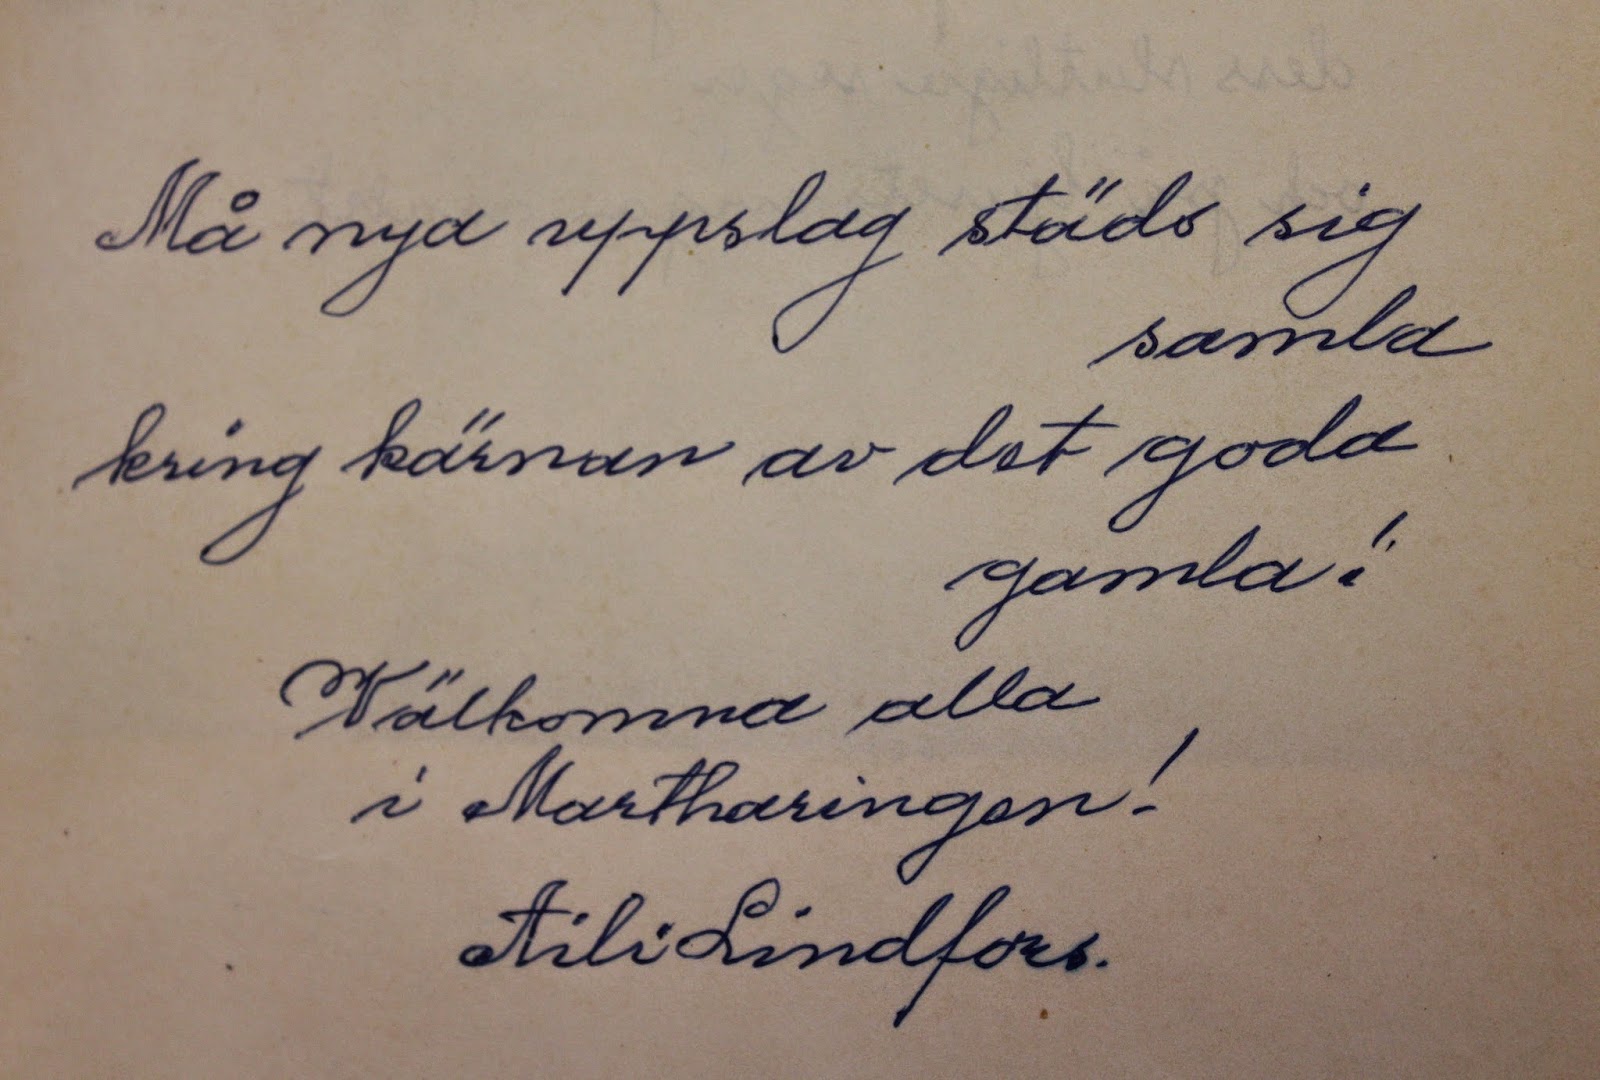 Må nya uppslag städs sig
samla
kring kärnan av det goda
gamla!
Välkomna alla
i Martharingen!
Aili Lindfors.